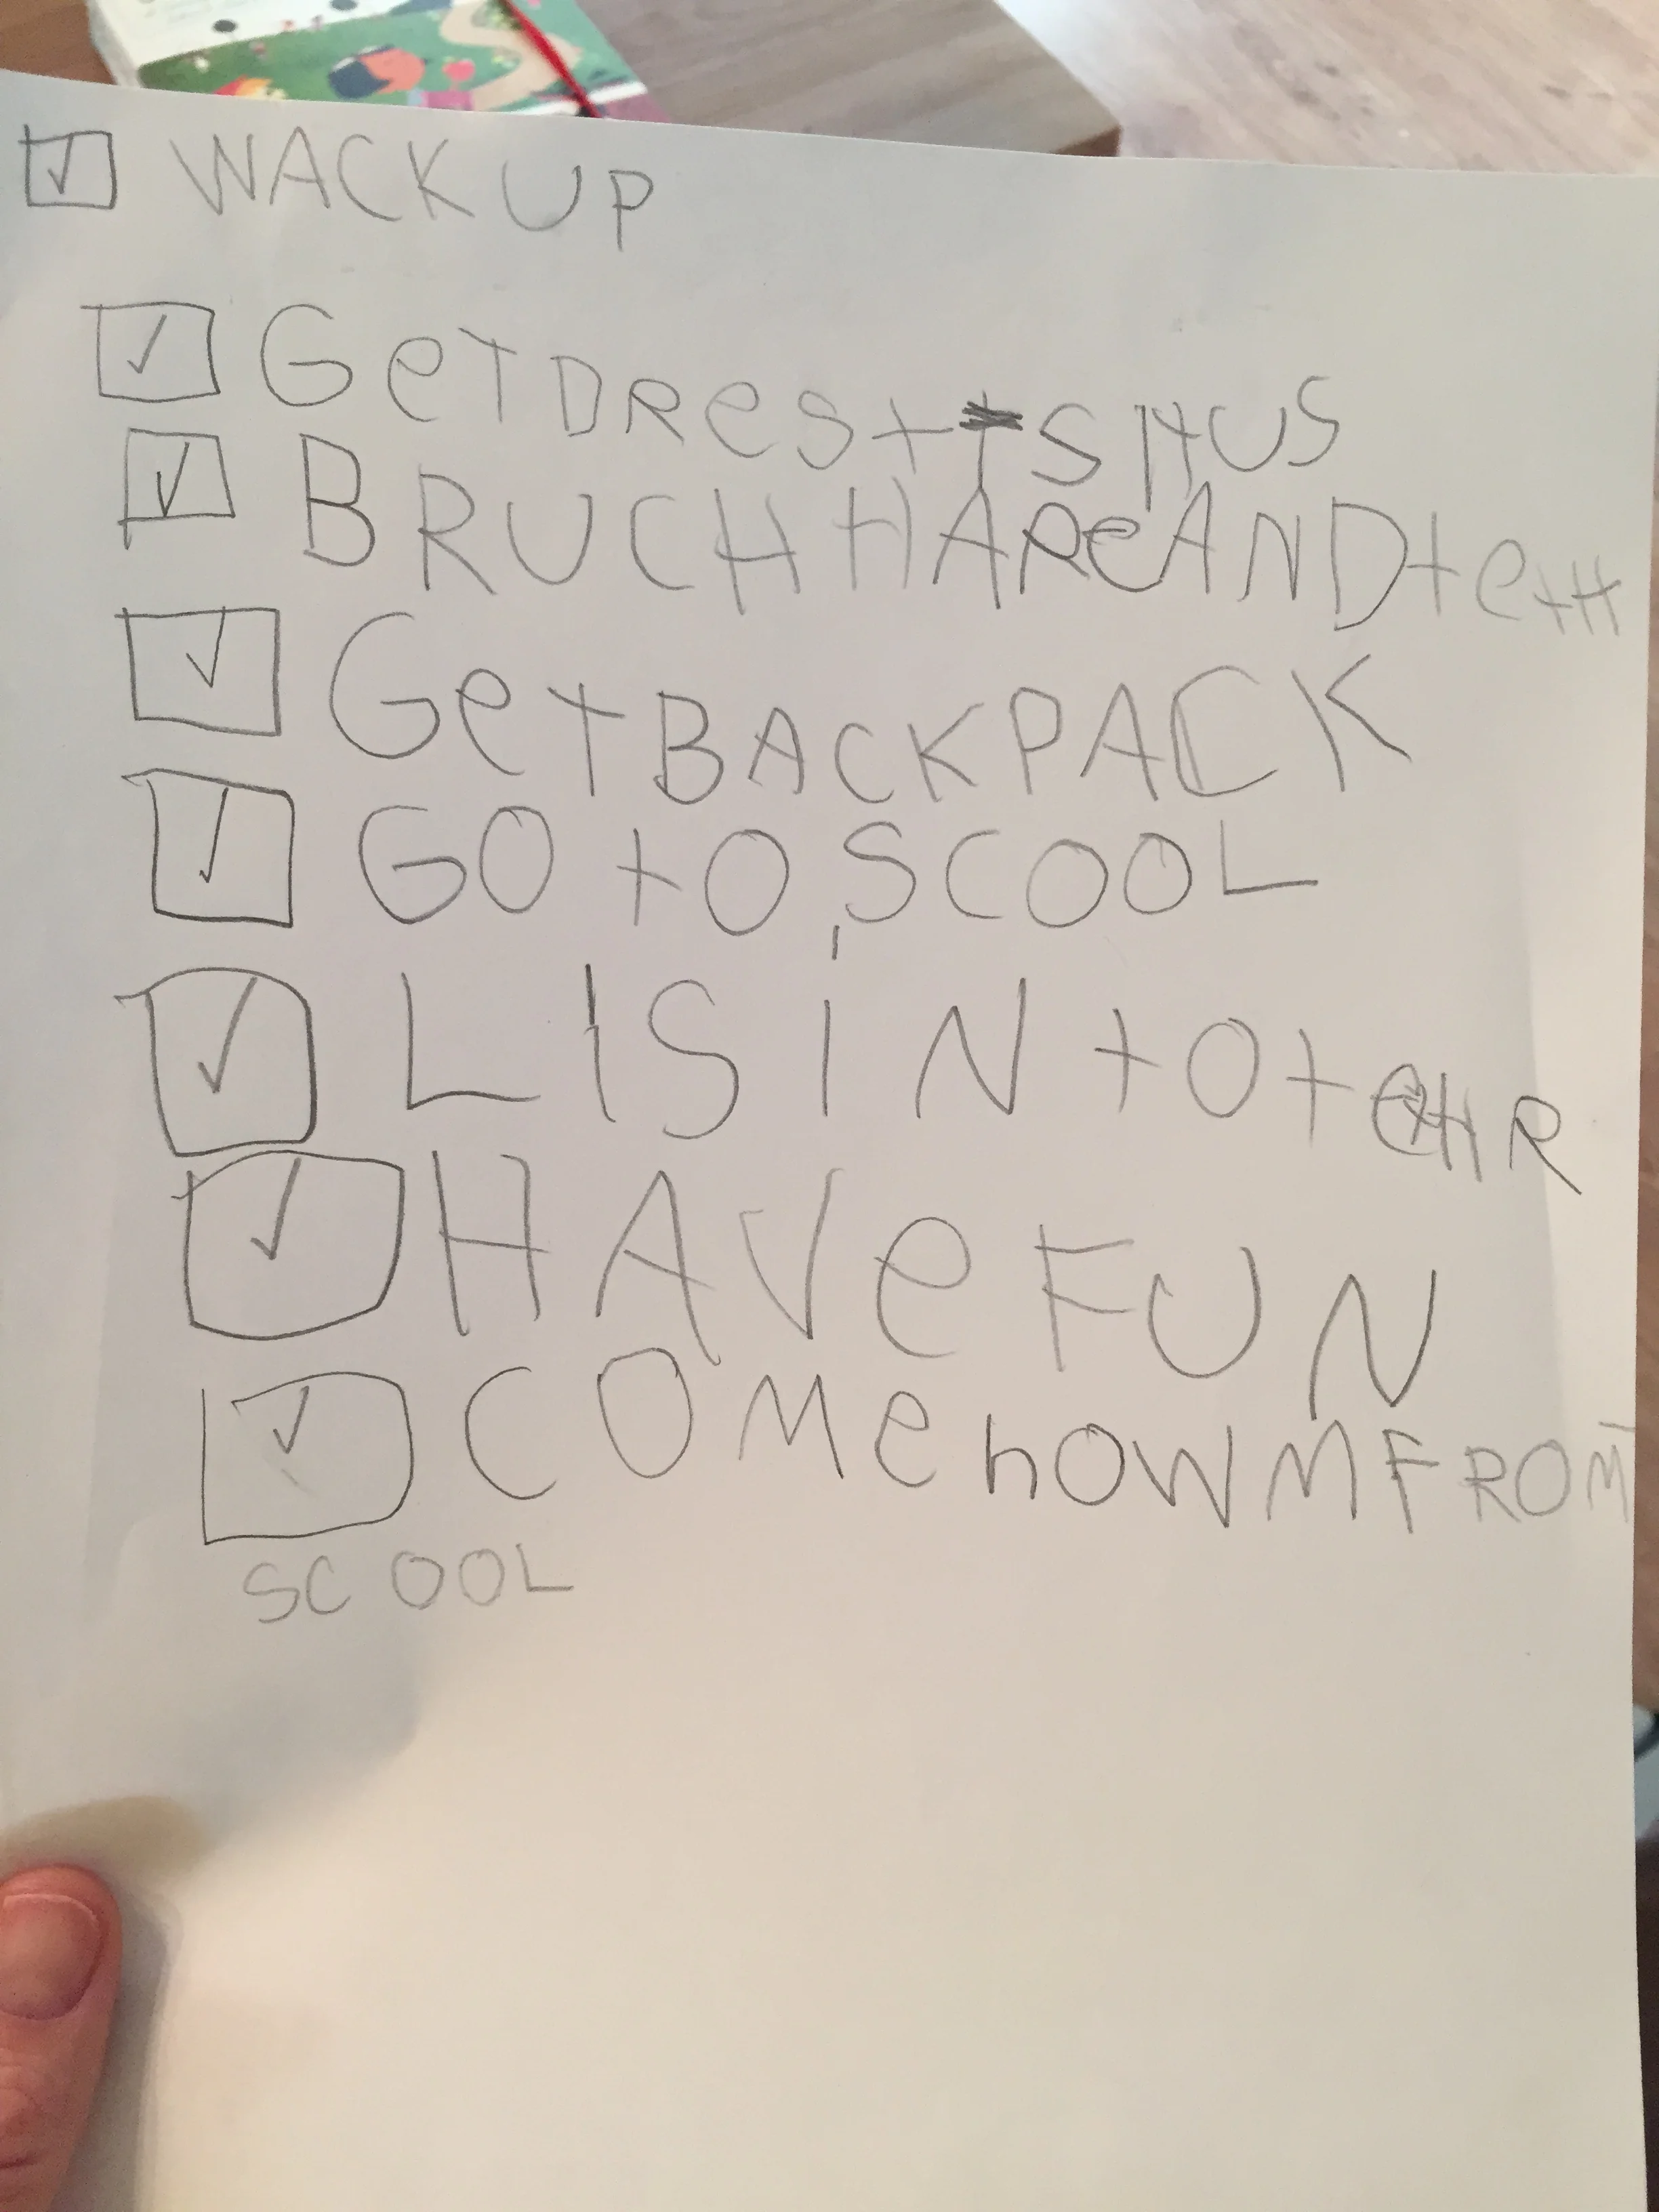 WACK UP
GeT DRest SHUS
BRUCH HARe AND tetH
Get BACKPACK
GO tO SCOOL
LISiN tO
HAVe FUN
COMe hOWM FROM
SCOOL